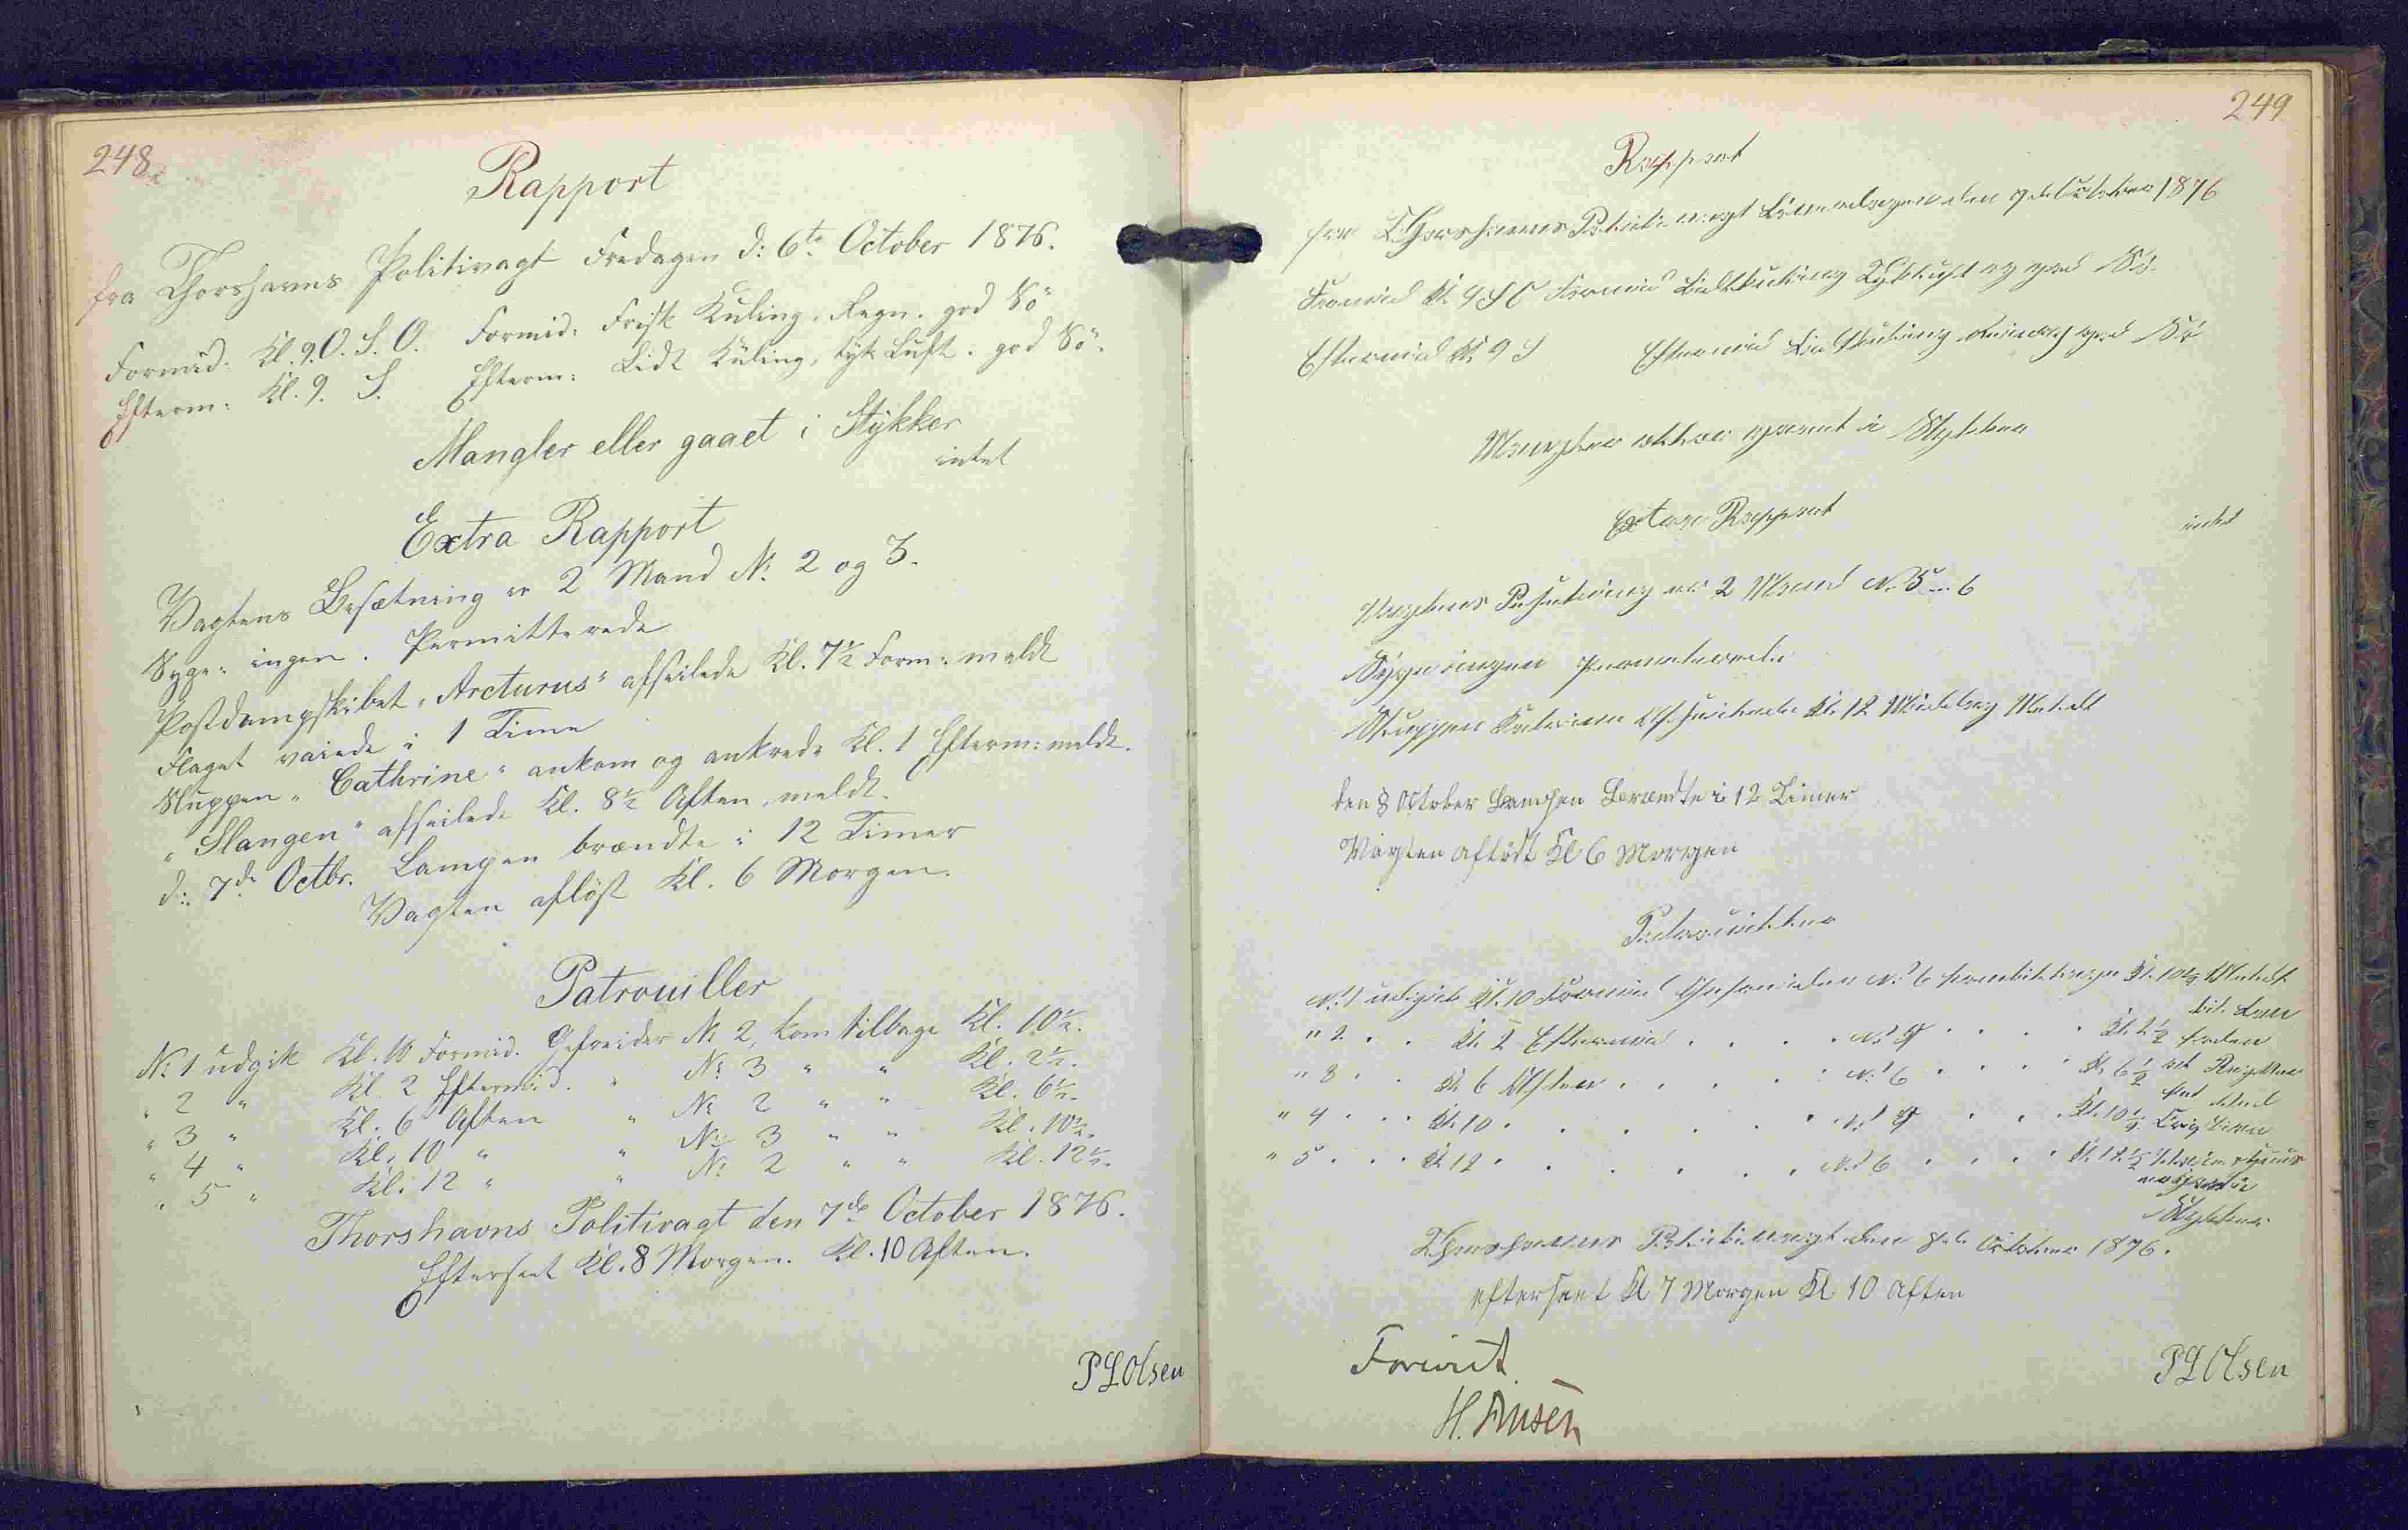 248
Rapport
fra Thorshavns Politivagt Fredagen d: 6te October 1876.
Formid: Kl. 9. O. S. O. Formid: Frisk Kuling, Regn. god Sö
Efterm: Kl. 9. S. Efterm: Lidt Kuling, tyk Luft. god Sö.
Mangler eller gaaet i Stykker
intet
Extra Rapport
Vagtens Besætning er 2 Mand No. 2 og 3.
Syge: ingen. Permitterede
Postdampskibet "Arcturus" afseilede Kl. 7½ Form: meldt
Flaget vaiede i 1 Time
Sluppen "Cathrine" ankom og ankrede Kl. 1 Efterm: meldt.
"Slangen" afseilede Kl. 8½ Aften, meldt.
d: 7de Octbr. Lampen brændte i 12 Timer
Vagten aflöst Kl. 6 Morgen.
Patrouiller
No. 1 udgik Kl. 10 Formid. Gefreider No. 2, kom tilbage Kl. 10½.
" 2 " Kl. 2 Eftermid. " No. 3 " " Kl. 2½.
" 3 " Kl. 6 Aften " No. 2 " " Kl. 6½.
" 4 " Kl. 10 " " No. 3 " " Kl. 10½.
" 5 " Kl. 12 " " No. 2 " " Kl. 12½.
Thorshavns Politivagt den 7de October 1876.
Efterseet Kl. 8 Morgen. Kl. 10 Aften.
P L Olsen
249
Rapport
fra Thorshavns Politivagt Löverdagen den 7de October 1876
Formid Kl. 9 S O Formid Lidt Kuling Tyk Luft og god Sö.
Eftermid Kl. 9 S Eftermid Lidt Kuling god Sö
Mangler eller gaaet i Stykker
Extra Rapport
intet
Vagtens Besætning er 2 Mand No. 5 - 6
Syge ingen Permiterede
Sluppen Catrine Afseilede Kl. 12 Middag Meldt
den 8 October Lampen Brændte i 12 Timer
Vagten aflöst Kl 6 Morgen
Patrouiller
No. 1 udgik Kl. 10 Formid Gefreider No. 6 kom tilbage Kl. 10½ Meldt
" 2 . . Kl. 2 Eftermid . . . . No. 5 . . . . Kl. 2½
" 3 . . Kl. 6 Aften . . . . No. 6 . . . . Kl. 6½
" 4 . . . Kl. 10 . . . . . . No. 5 . . . . Kl. 10½
" 5 . . . Kl. 12 . . . . . . No. 6 . . . . Kl. 12½
Stykker
Thorshavns Politivagt den 8de October 1876.
efterseet Kl 7 Morgen Kl 10 Aften
Forevist.
P L Olsen